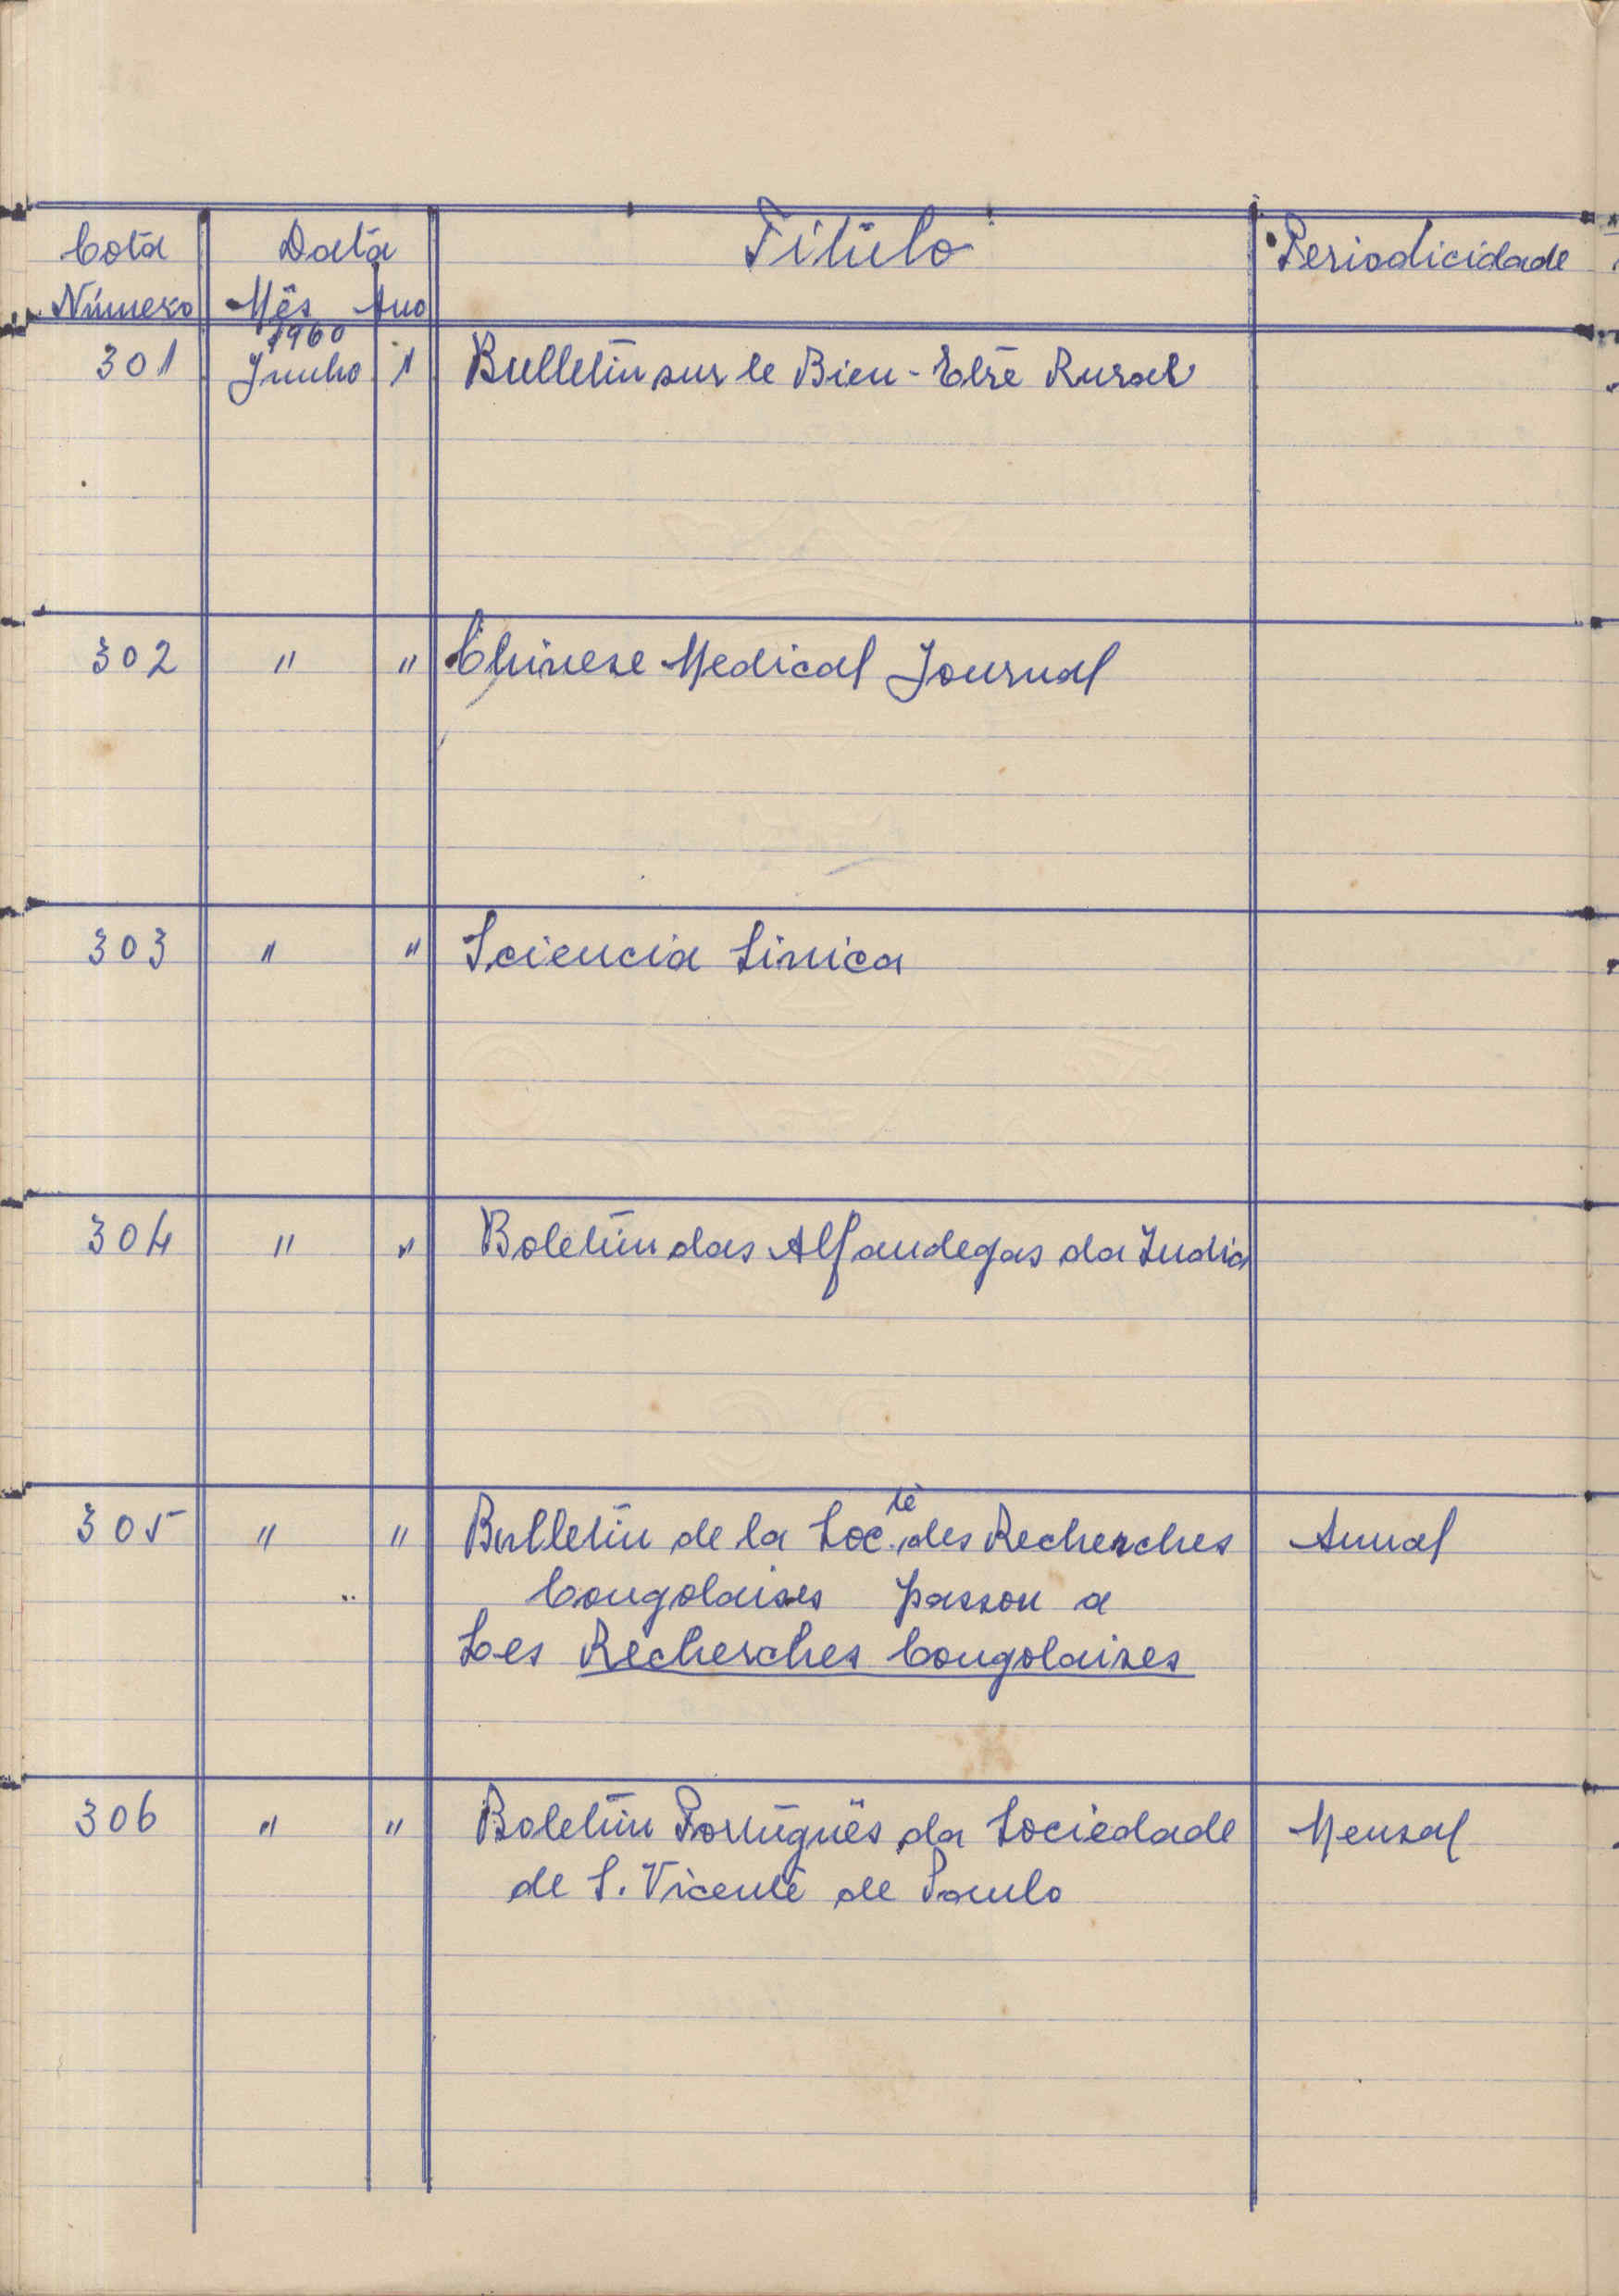 Cota Data Titulo Periodicidade
Número Mês Ano
1960
301 Junho 1 Bulletin sur le Bien-Etre Rural
302 " " Chinese Medical Journal
303 " " Sciencia Sinica
304 " " Boletim das Alfandegas da India
305 " " Bulletin de la Soc.té des Recherches Annal
Congolaises passou a
Les Recherches Congolaises
306 " " Boletim Português da Sociedade Mensal
de S. Vicente de Paulo